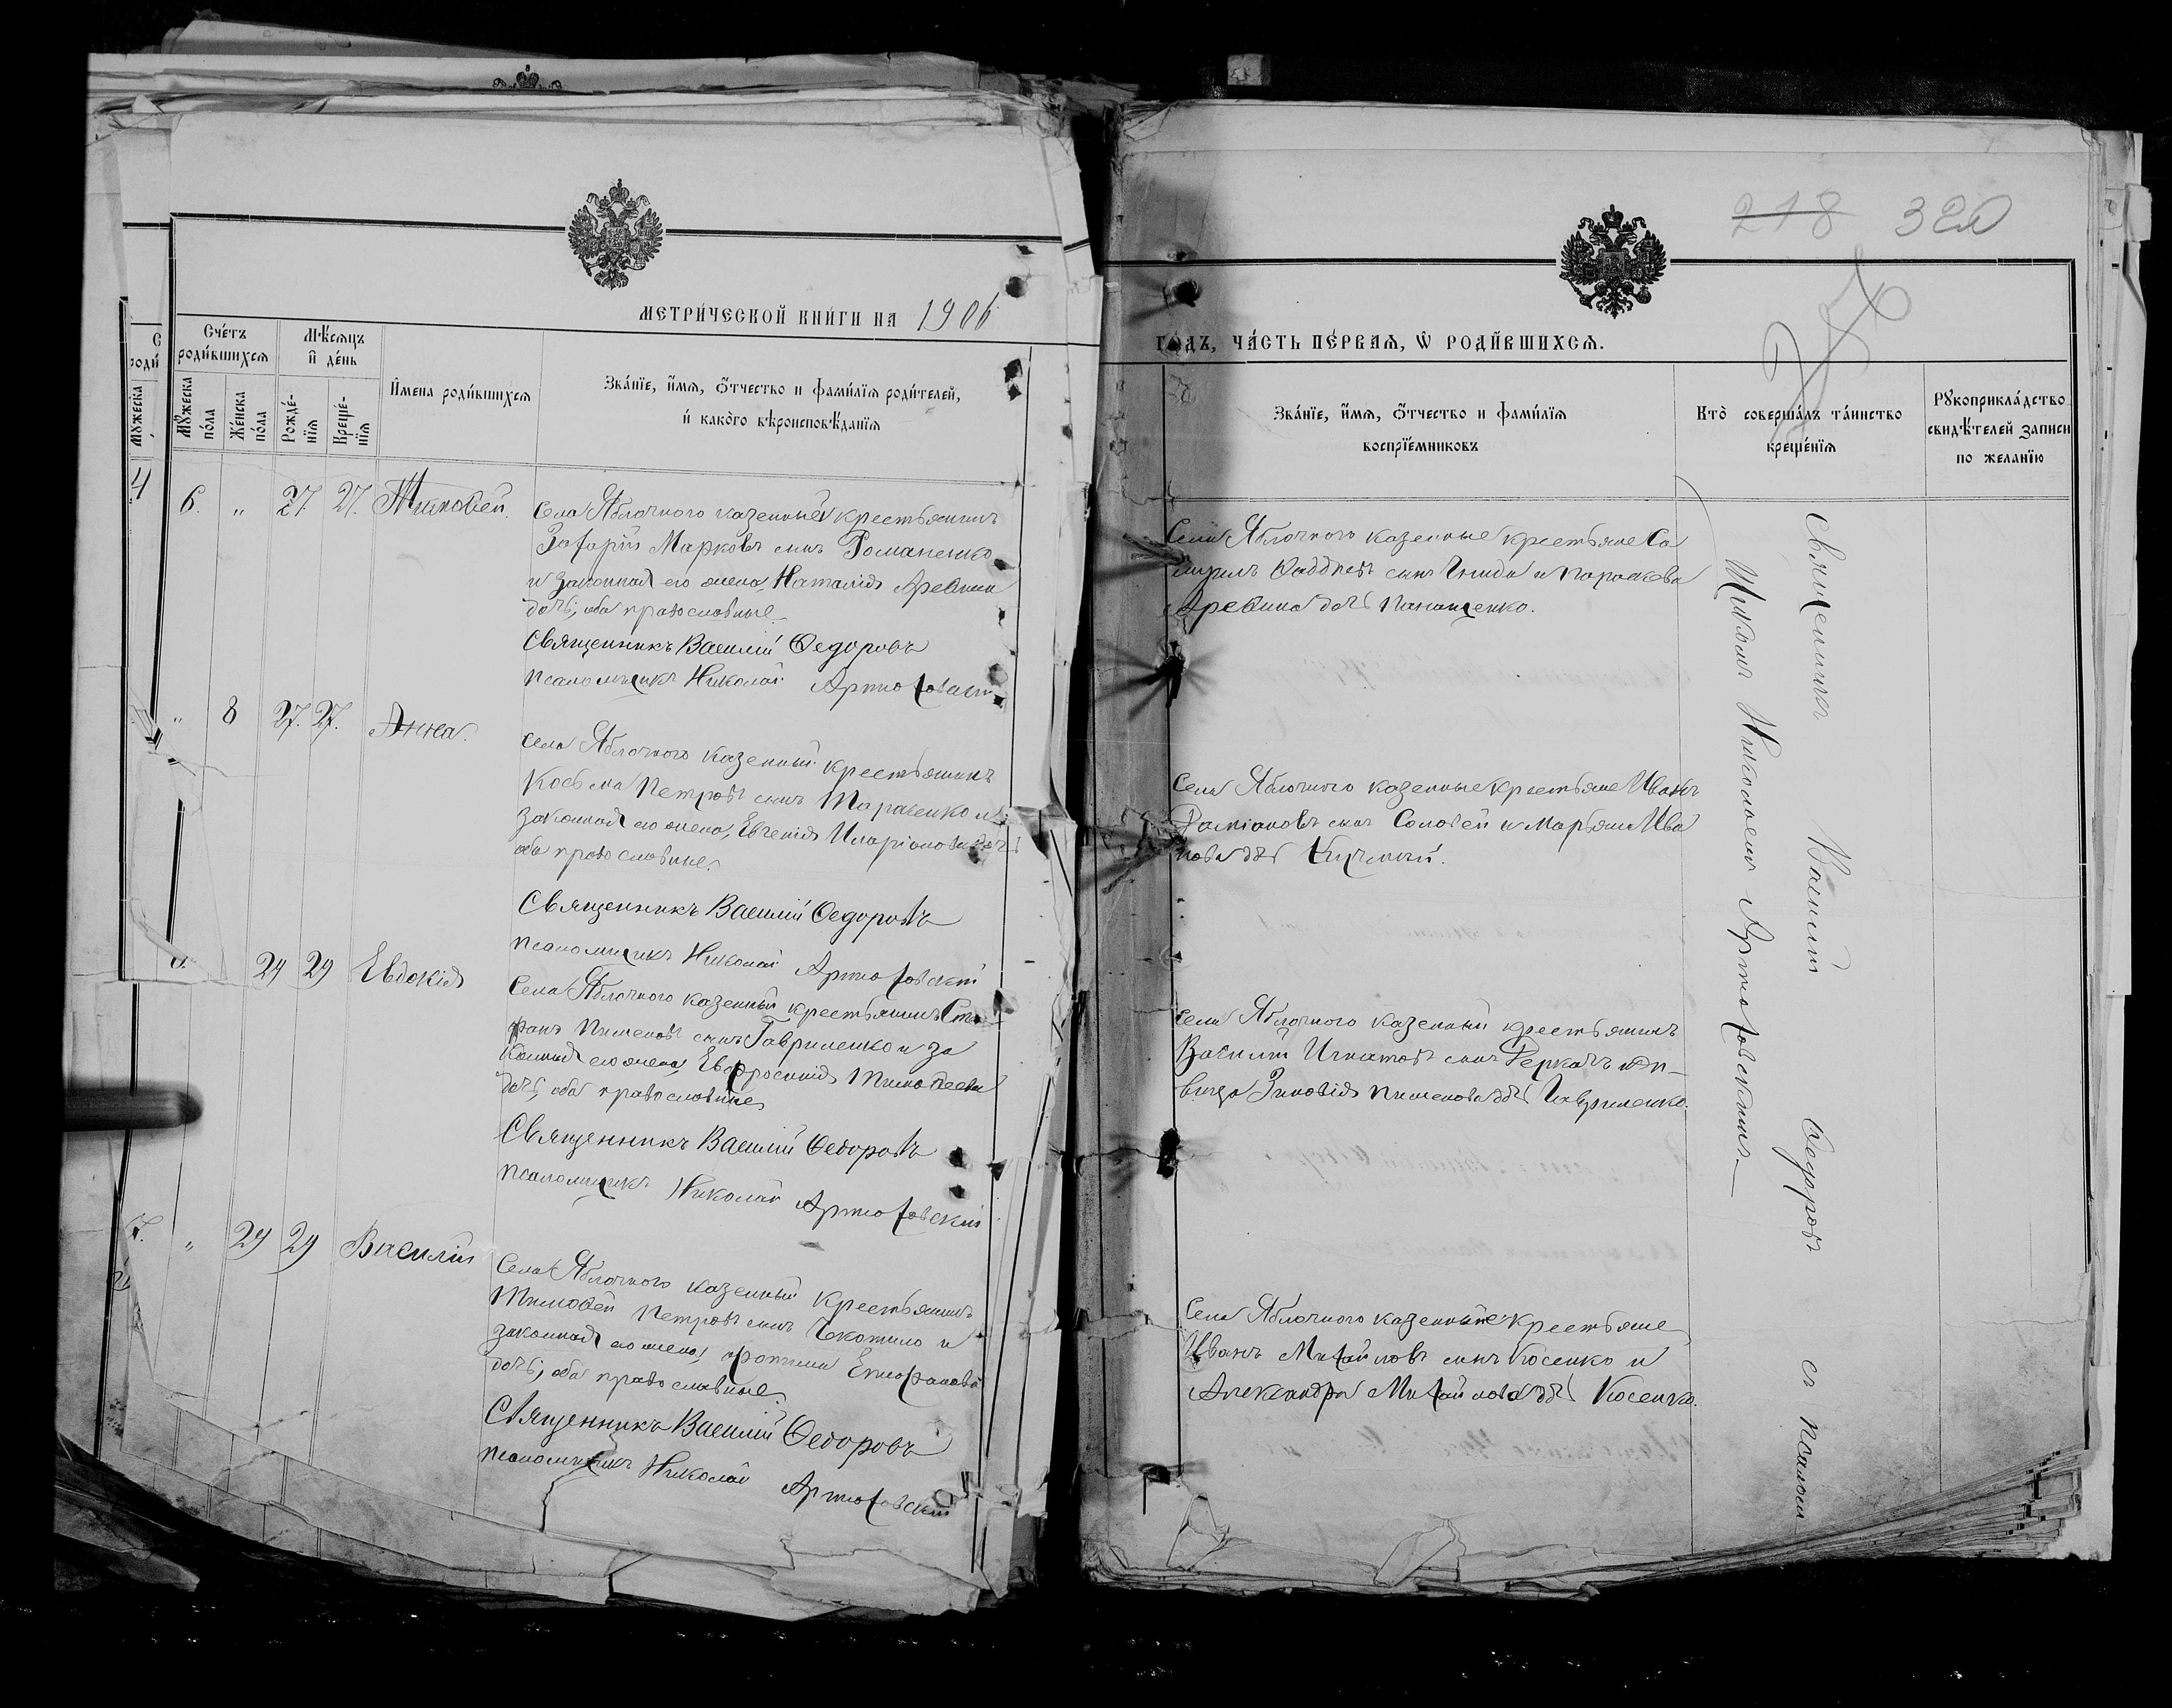 218 320
МЕТРИ́ЧЕСКОЙ КНИ́ГИ НА 1906
ГО́ДЪ, ЧА́СТЬ ПЕ́РВАЯ, Ѡ РОДИ́ВШИХСЯ.
Сче́тъ роди́вшихся
Мꙋ́жеска по́ла
Же́нска по́ла
Мѣ́сяцъ и де́нь
Рожде́нїя
Креще́нїя
И́мена роди́вшихся
Зва́нїе, и́мя, ѻ́тчество и фами́лїя роди́телей,
и како́го вѣроисповѣ́данїя
Зва́нїе, и́мя, ѻ́тчество и фами́лїя
воспрїе́мниковъ
Кто̀ соверша́лъ та́инство
креще́нїя
Рꙋкоприкла́дство
свидѣ́телей записи
по жела́нїю
4
6. „ 27. 27. Тимоѳей.
Села Яблочного казенный крестьянинъ
Захарій Марковъ сынъ Романенко
и законная его жена, Наталія Арефина
дочь; оба православные.
Священникъ Василій Ѳедоровъ
псаломщикъ Николай Артюховскій
Села Яблочного казенные крестьяне Са
муилъ Ѳаддеевъ сынъ Гнида и Параскева
Арефина дочь Панащенко.
„ 8 27. 27. Анна.
Села Яблочного казенный крестьянинъ
Косьма Петровъ сынъ Тарасенко и
законная его жена, Евгенія Иларіонова дочь
оба православные.
Священникъ Василій Ѳедоровъ
псаломщикъ Николай Артюховскій
Села Яблочного казенные крестьяне Иванъ
Даміановъ сынъ Соловей и Марѳа Ива
нова дочь
29 29 Евдокія
Села Яблочного казенный крестьянинъ Сте
фанъ Пименовъ сынъ Гавриленко и за
конная его жена, Евфросинія Тимоѳеева
дочь; оба православные
Священникъ Василій Ѳедоровъ
псаломщикъ Николай Артюховскій
Села Яблочного казенный крестьянинъ
Василій Игнатовъ сынъ Деркачъ и дѣ-
вица Зиновія Пименова дочь Гавриленко.
7. „ 29 29 Василій
Села Яблочного казенный крестьянинъ
Тимоѳей Петровъ сынъ Чекотило и
законная его жена, Епифанова
дочь; оба православные.
Священникъ Василій Ѳедоровъ
псаломщикъ Николай Артюховскій
Села Яблочного казенные крестьяне
Иванъ Михайловъ сынъ Косенко и
Александра Михайлова дочь Косенко.
Священникъ Василій Ѳедоровъ съ псалом
щикомъ Николаемъ Артюховскимъ.